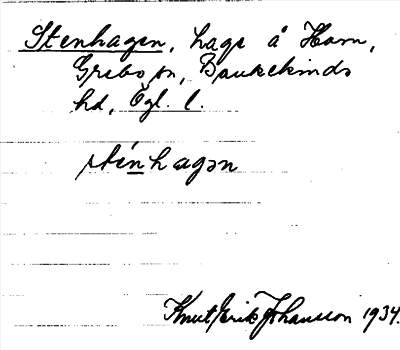 Stenhagen, hage å Ham,
Grebo sn, Bankekinds
hd, Ögl. l.
sténhagən
Knut Erik Johansson 1934.